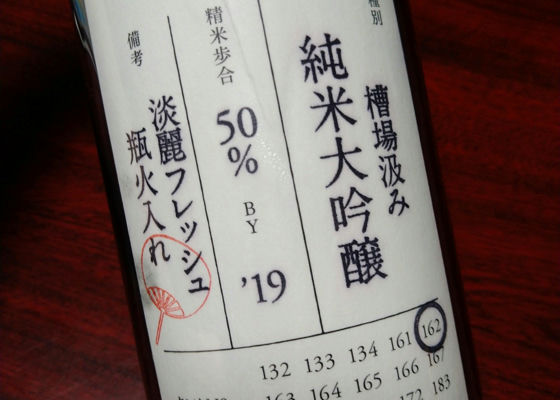 種別
槽場汲み
純米大吟醸
精米歩合
50%
BY
'19
備考
淡麗フレッシュ
瓶火入れ
132 133 134 161 162
163 164 165 166 167
172 183